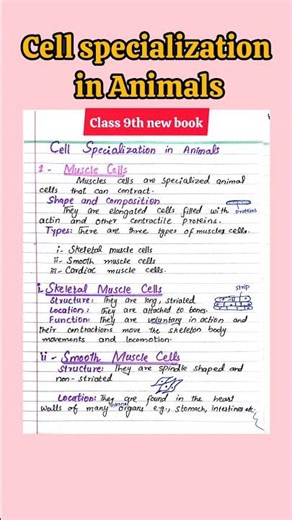 Cell specialization
in Animals
Class 9th new book
Cell Specialization in Animals
1 - Muscle Cells
Muscles cells are specialized animal
cells that can contract.
Shape and Composition
They are elongated cells filled with proteins
actin and other contractile proteins.
Types: There are three types of muscles cells.
i- Skeletal muscle cells
ii- Smooth muscle cells
iii- Cardiac muscle cells.
i. Skeletal Muscle Cells strip
Structure: They are long, striated.
Location: They are attached to bones.
Function: They are voluntary in action and
their contractions move the skeleton body
movements and locomotion.
ii - Smooth Muscle Cells
Structure: They are spindle shaped and
non-striated
Location: They are found in the heart
walls of many organs e.g., stomach, intestines etc.